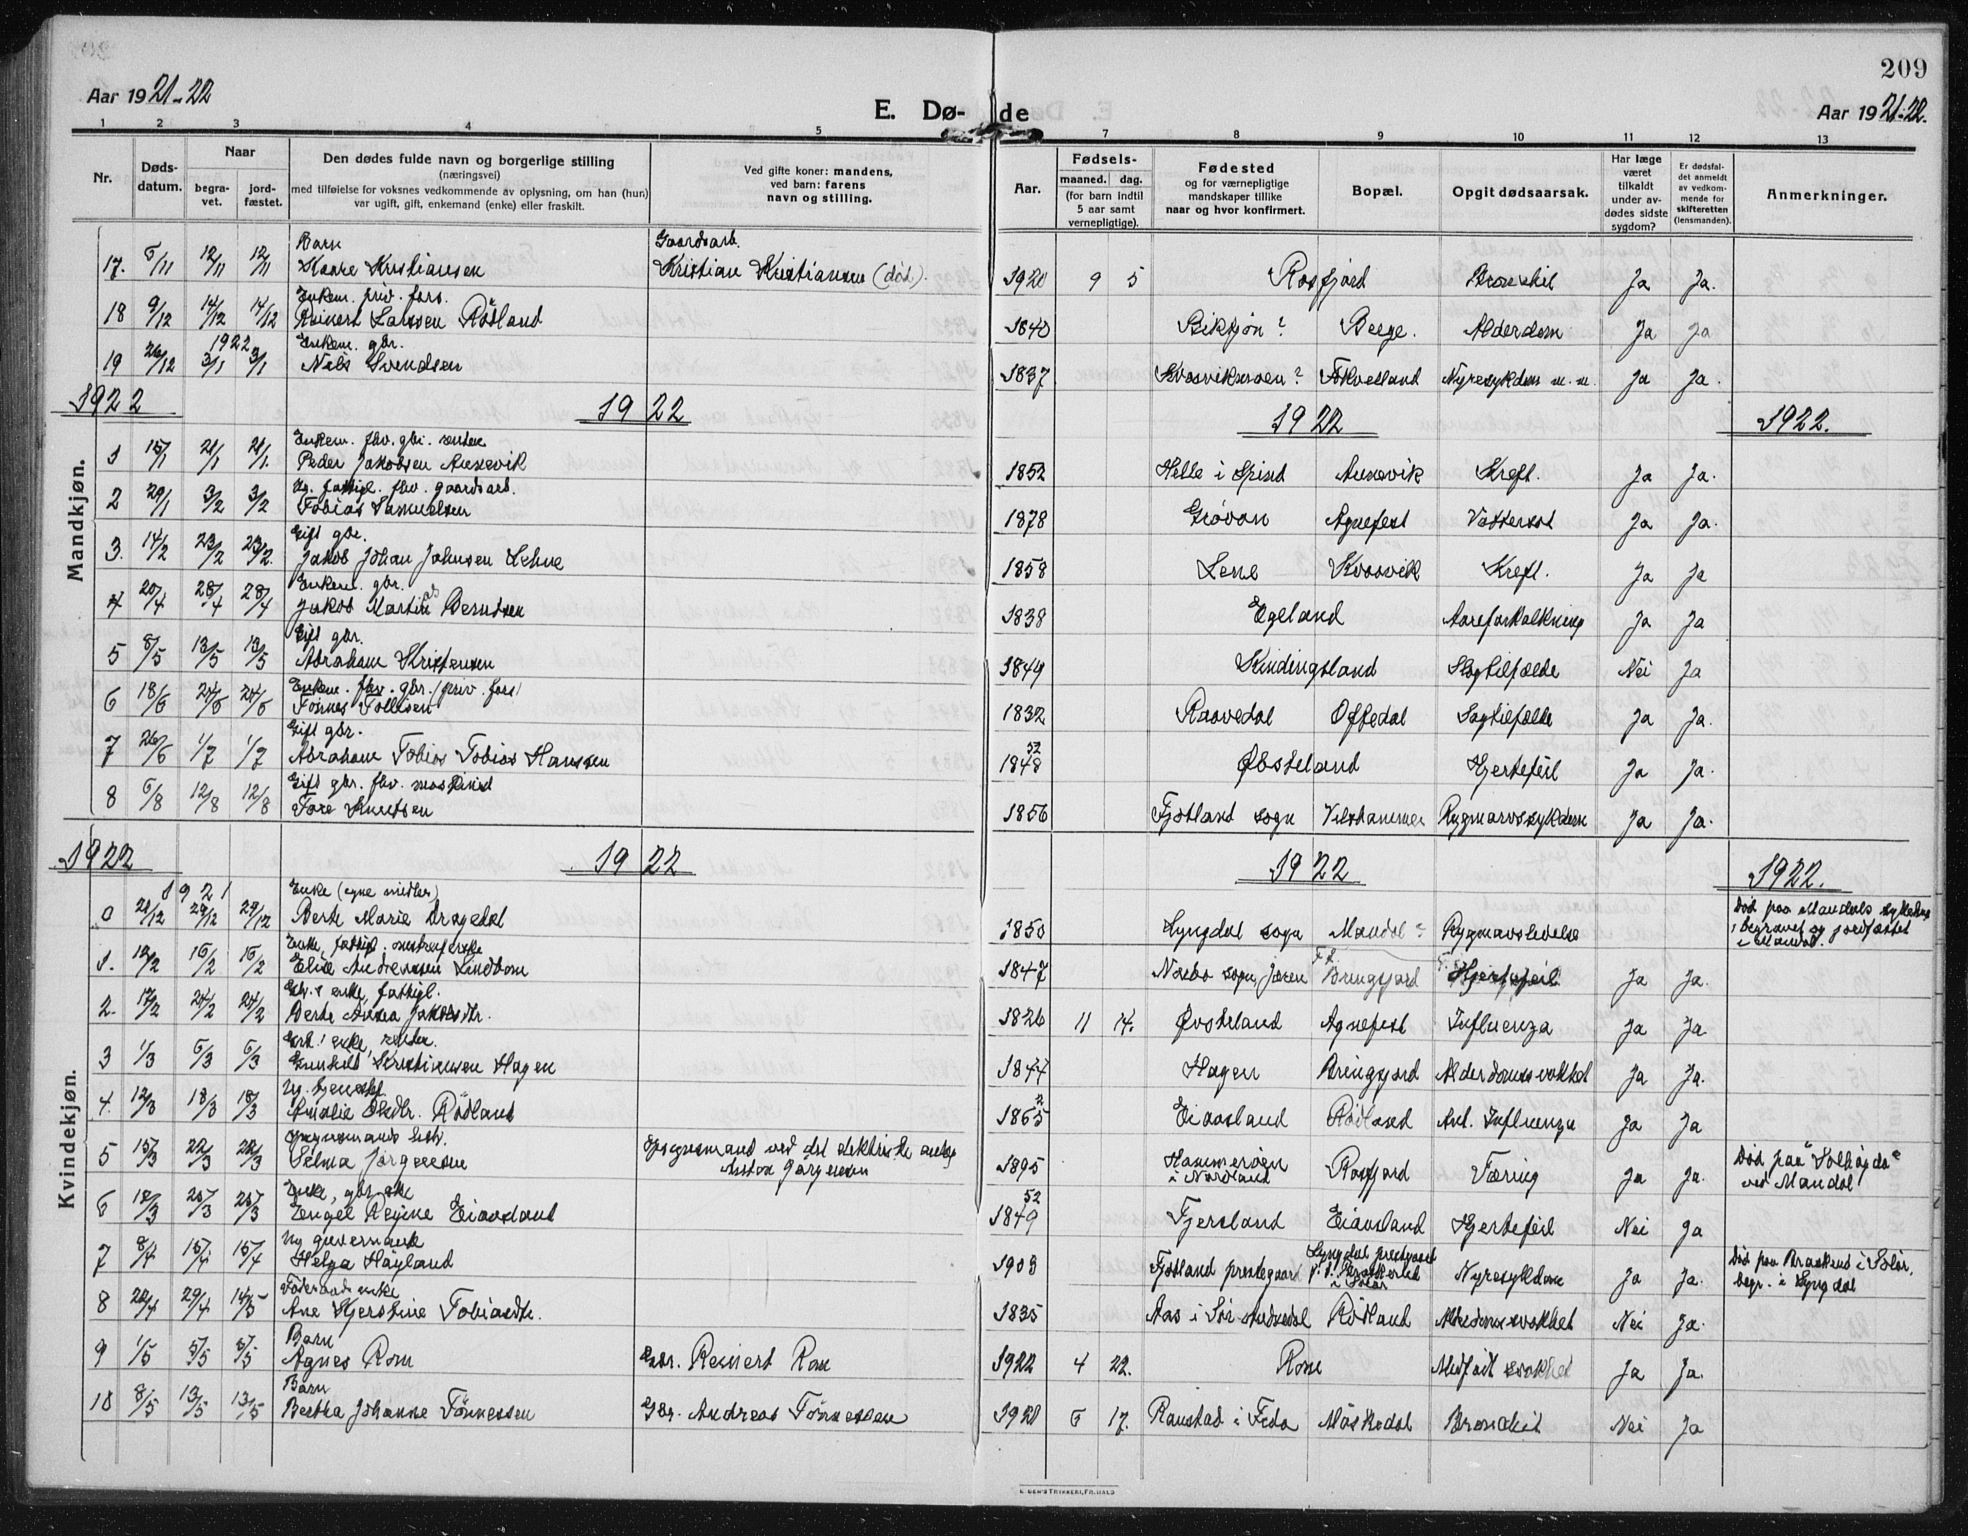 209
Aar 1921-22
E. Dø-
de
Aar 1921-22.
1 2 3 4 5 7 8 9 10 11 12 13
Nr.
Døds-
datum.
Naar
begra-
vet.
jord-
fæstet.
Den dødes fulde navn og borgerlige stilling
(næringsvei)
med tilføielse for voksnes vedkommende av oplysning, om han (hun)
var ugift, gift, enkemand (enke) eller fraskilt.
Ved gifte koner: mandens,
ved barn: farens
navn og stilling.
Aar.
Fødsels-
maaned. dag.
(for barn indtil
5 aar samt
vernepligtige).
Fødested
og for værnepligtige
mandskaper tillike
naar og hvor konfirmert.
Bopæl.
Opgit dødsaarsak.
Har læge
været
tilkaldt
under av-
dødes sidste
sygdom?
Er dødsfal-
det anmeldt
av vedkom-
mende for
skifteretten
(lensmanden).
Anmerkninger.
Barn Gaardsarb.
17. 5/11 12/11 12/11 Kaare Kristiansen Kristian Kristiansen (död). 1920 9 5 Rosfjord Bronkit Ja Ja.
Enkem. priv. fors.
18 9/12 14/12 14/12 Reinert Larssen Rödland 1840 Birkjön? Berge. Alderdom Ja Ja
1922 Enkem. gbr.
19 26/12 3/1 3/1 Nils Svendsen 1837 Kvasvikmoen? Kvelland Nyresykdom m.m. Ja Ja.
1922 1922 1922 1922.
Mandkjøn.
Enkem. fhv. gbr.
1 15/1 21/1 21/1. Peder Jakobsen Aunevik 1852 Helle i Spind Aunevik Kreft. Ja Ja.
Ug. fattigl. fhv. gaardsarb.
2 29/1 3/2 3/2 Tobias Samuelsen 1878 Grövan Agnefest Vattersot Ja Ja.
Gift gbr.
3. 14/2 23/2 23/2. Jakob Johan Johnsen Lehne 1858 Lene Kvavik Kreft. Ja Ja
Enkem. gbr.
4 20/4 28/4 28/4 Jakob Martin Berntsen 1838 Egeland Aareforkalkning Ja Ja
Gift gbr.
5 8/5 13/5 13/5 Abraham Kristensen 1849 Skindingsland Slagtilfælde Nei Ja
Enkem. fhv. gbr. (priv. fors)
6 18/5 24/5 24/5 Tönnes Tollisen 1832 Raavedal Offedal Slagtilfælde Ja Ja.
Gift gbr.
7 26/6 1/7 1/7 Abraham Tobias Tobias Hanssen 1848 52 Øbsteland Hjertefeil Ja Ja.
Gift gbr. fhv.
8 5/8 12/8 12/8 Tore Knutsen 1856 Fjotland sogn Rygmarvssykdom Ja Ja.
1922 1922 1922 1922.
Kvindekjøn.
1921 Enke (egne midler)
0 21/12 29/12 29/12 Berte Marie Dragedal 1850 Lyngdal sogn Mandal? Rygmarvslidelse Död paa Mandals sykehus
begravet og jordfæstet
i Mandal.
Enke, fattigl.
1. 12/2 16/2 16/2 Elise Andreassen Lindbom 1847 Nærbø sogn, Jæren Bringsjord Hjertefeil Ja Ja.
enke, fattigl.
2. 17/2 24/2 24/2 Berte Anna Jakobsdtr. 1826 11 14. Øvsteland Agnefest Influenza Ja Ja.
enke,
3 1/3 5/3 5/3 Gunhild Kristiansen Hagen 1844 Hagen Bringsjord Alderdomssvakhet Ja Ja.
Ug.
4. 12/3 18/3 18/3 Amalie Rödland 1865 Eiaasland Rödland Ant. Influenza Ja Ja
5 15/3 22/3 22/3 Selma Jörgensen Opsynsmand ved det elektriske anlæg
Anton Jörgensen 1895 Hammeröen
i Nordland Rosfjord Tæring Ja Ja. Död paa "Solhögda"
ved Mandal
Enke, gbr.ske
6 18/3 25/3 25/3 Engel Regine Eiaasland 1849 52 Fjersland Eiaasland Hjertefeil Nei Ja
Ug guvernante
7 8/4 15/4 15/4 Helga Höyland 1903 Fjotland prestegaard Lyngdal prestgaard Nyresykdom Ja Ja. Död paa Braskerud i Solör,
begr. i Lyngdal
Föderaadsenke
8 22/4 29/4 14/5 Ane Kjerstine Tobiasdtr. 1835 Aas i Sör Audnedal Rödland Alderdomssvakhet Nei Ja.
Barn
9 1/5 5/5 5/5 Agnes Rom Gbr. Reinert Rom 1922 4 22. Rom Medfödt svakhet Ja Ja.
Barn
10 8/5 13/5 13/5 Bertha Johanne Tönnessen Gbr. Andreas Tönnessen 1920 6 17. Ranstad i Feda Möskedal Bronkit Nei Ja